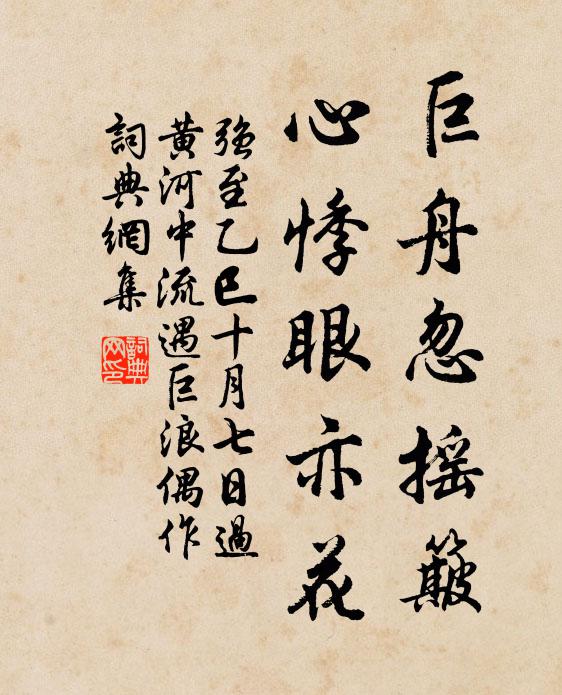 巨舟忽摇簸
心悸眼亦花
強至乙巳十月七日過
黄河中流遇巨浪偶作
詞典網集
詞典網印